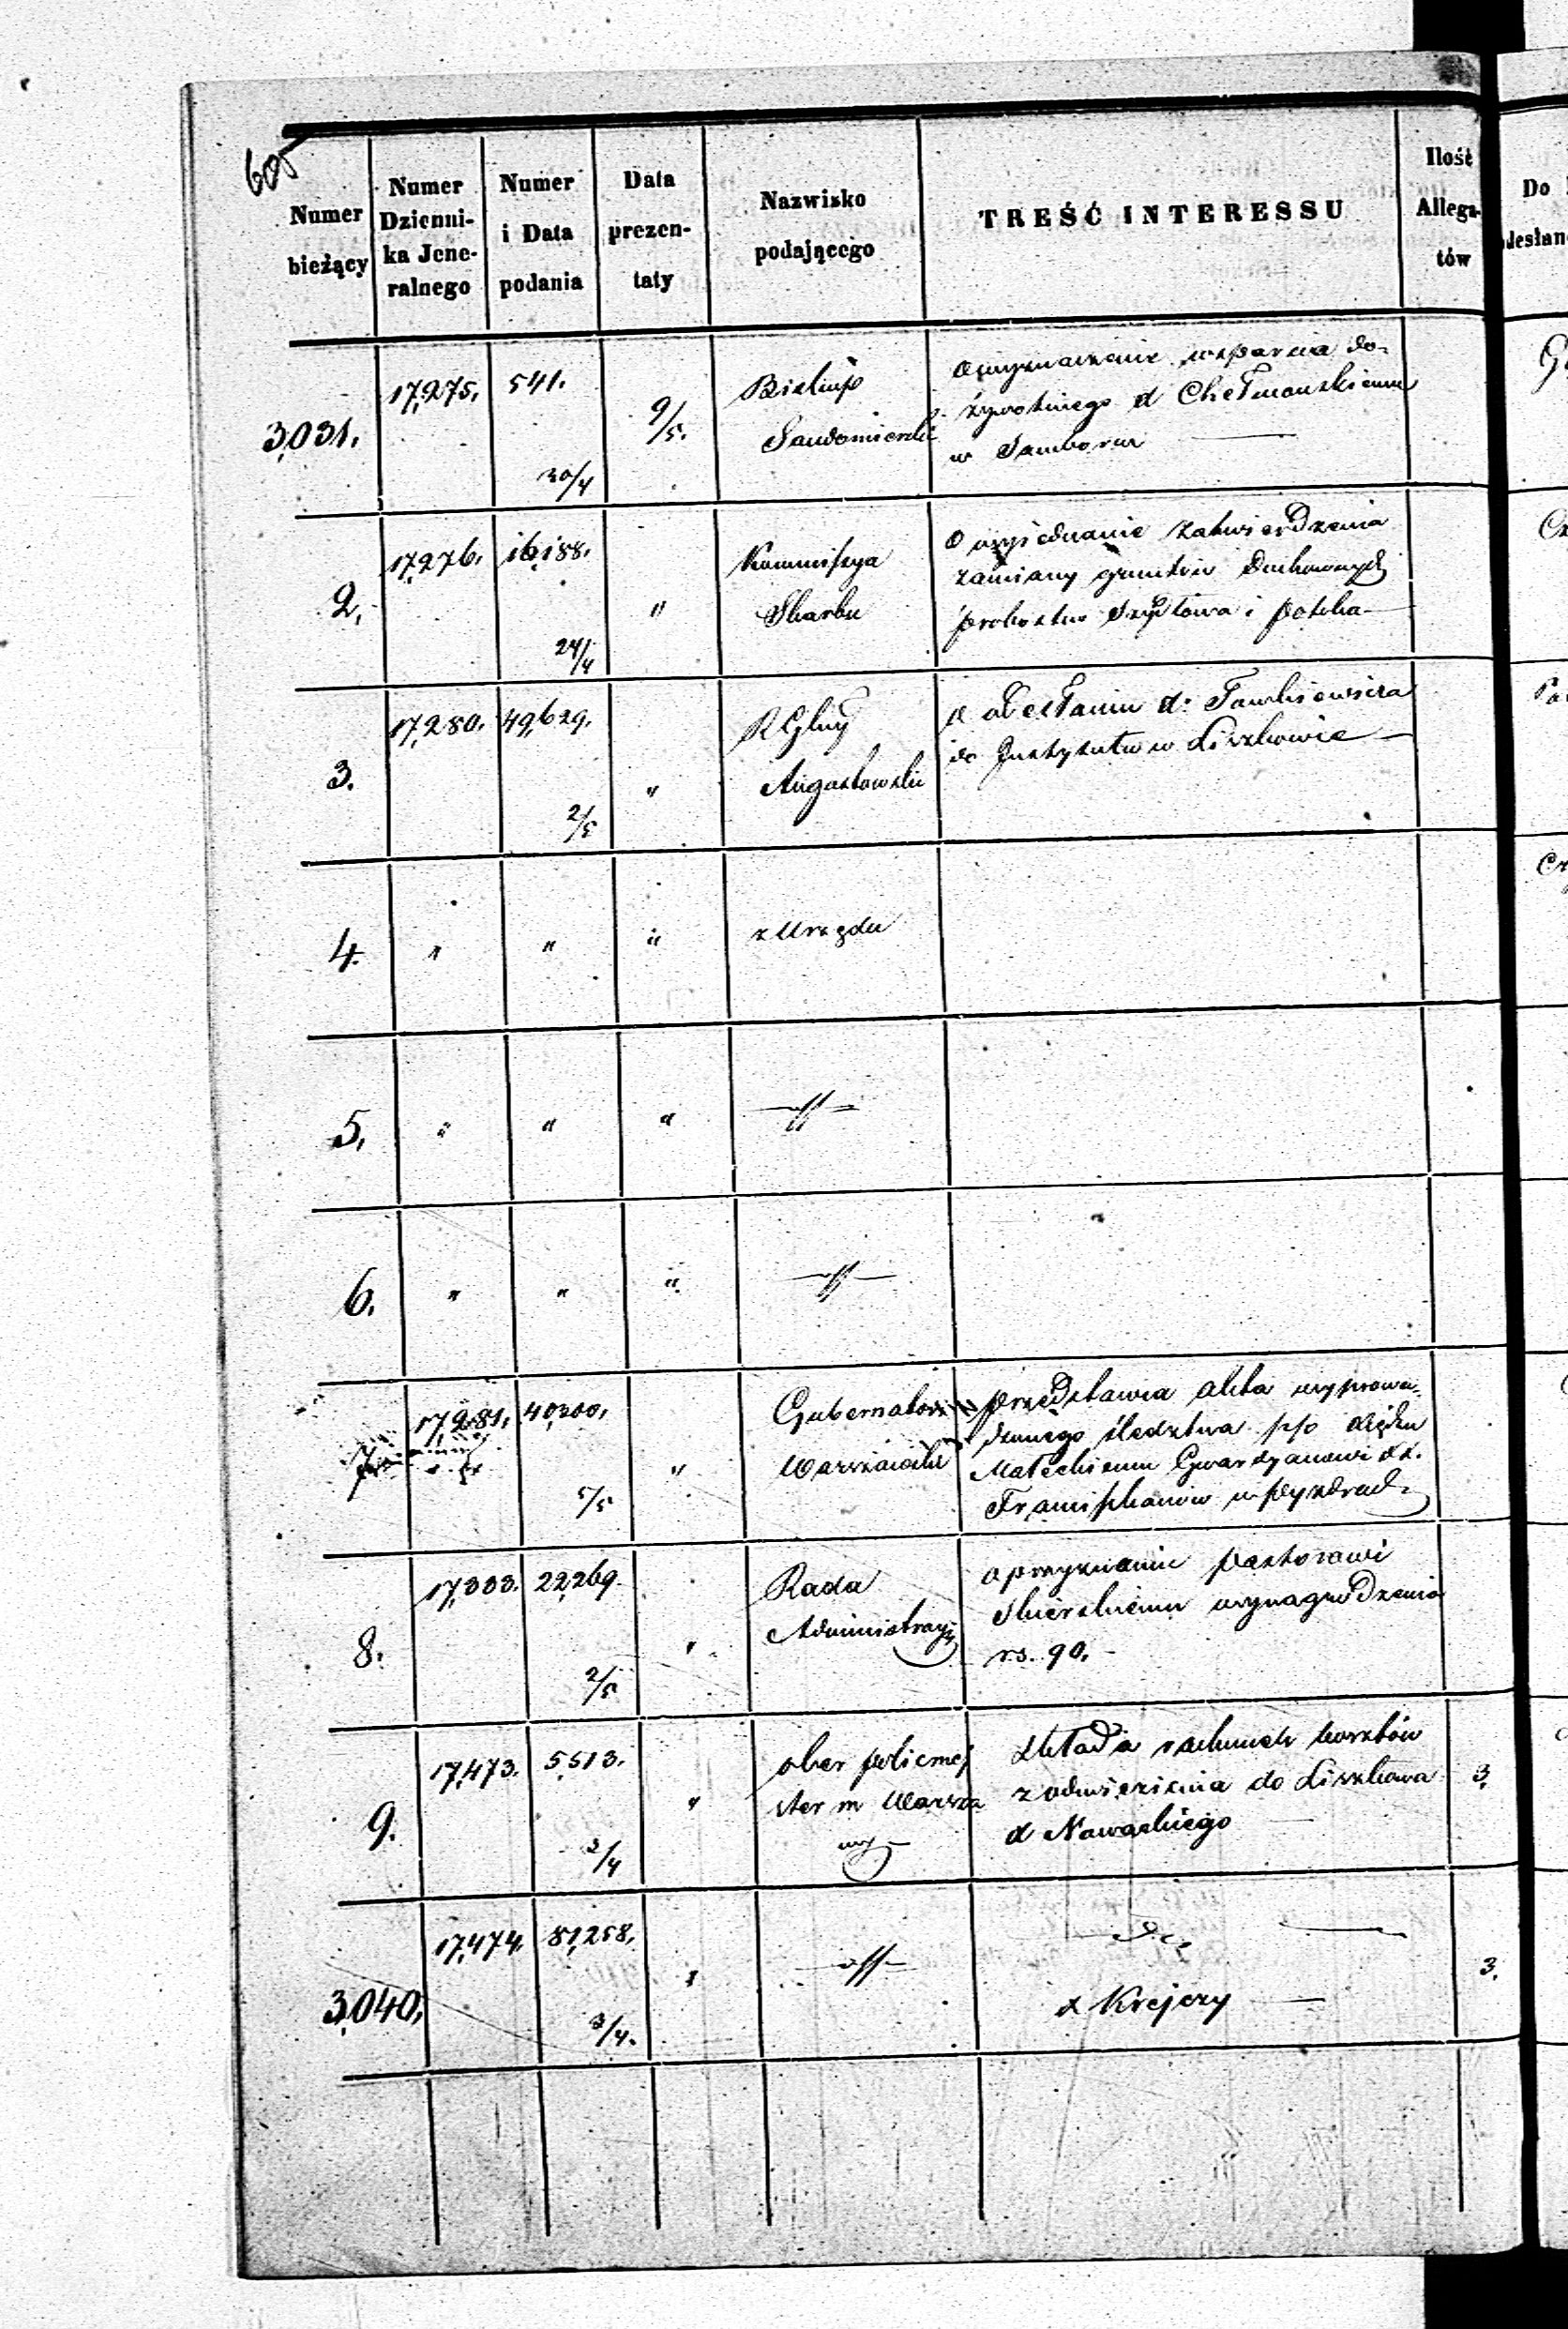 605
Numer bieżący
Numer Dzienni-ka Jene-ralnego
Numer i Data podania
Data prezen-taty
Nazwisko podającego
TREŚĆ INTERESSU
Ilość Allega-tów
Do
3,031. 17,275. 541. 30/4 9/5. Biskup Sandomierski
o wyznaczenie wsparcia do-
żywotniego X Chełmowskiemu
w Samborcu
2. 17,276. 16,188. 24/4 " Kommissya Skarbu
O wyjednanie zatwierdzenia
zamiany gruntów Duchownych
probostw Szydłowa i
3. 17,280. 49,629. 2/5 " R Glny Augustowski
o odesłaniu X
do Instytutu w Liszkowie
4. " " " z Urzędu
5. " " "
6. " " "
7. 17,281. 40,300. 5/5 " Gubernator Warszawski
przedstawia akta wyprowa-
dzonego śledztwa p/o Xiędzu
Małeckiemu Gwardyanowi XX.
Franciszkanów w Pyzdrach
8. 17,333. 22,269. 2/5 " Rada Administracyj
o przyznaniu pastorowi
wynagrodzenia
rs. 90.
9. 17,473. 5,513. 3/4 " ober policmej ster m Warsza wy
składa rachunek kosztów
z odwiezienia do Liszkowa
X Nawackiego
3.
3,040. 17,474. 81,258. 3/4. "
X Krejczy
3.